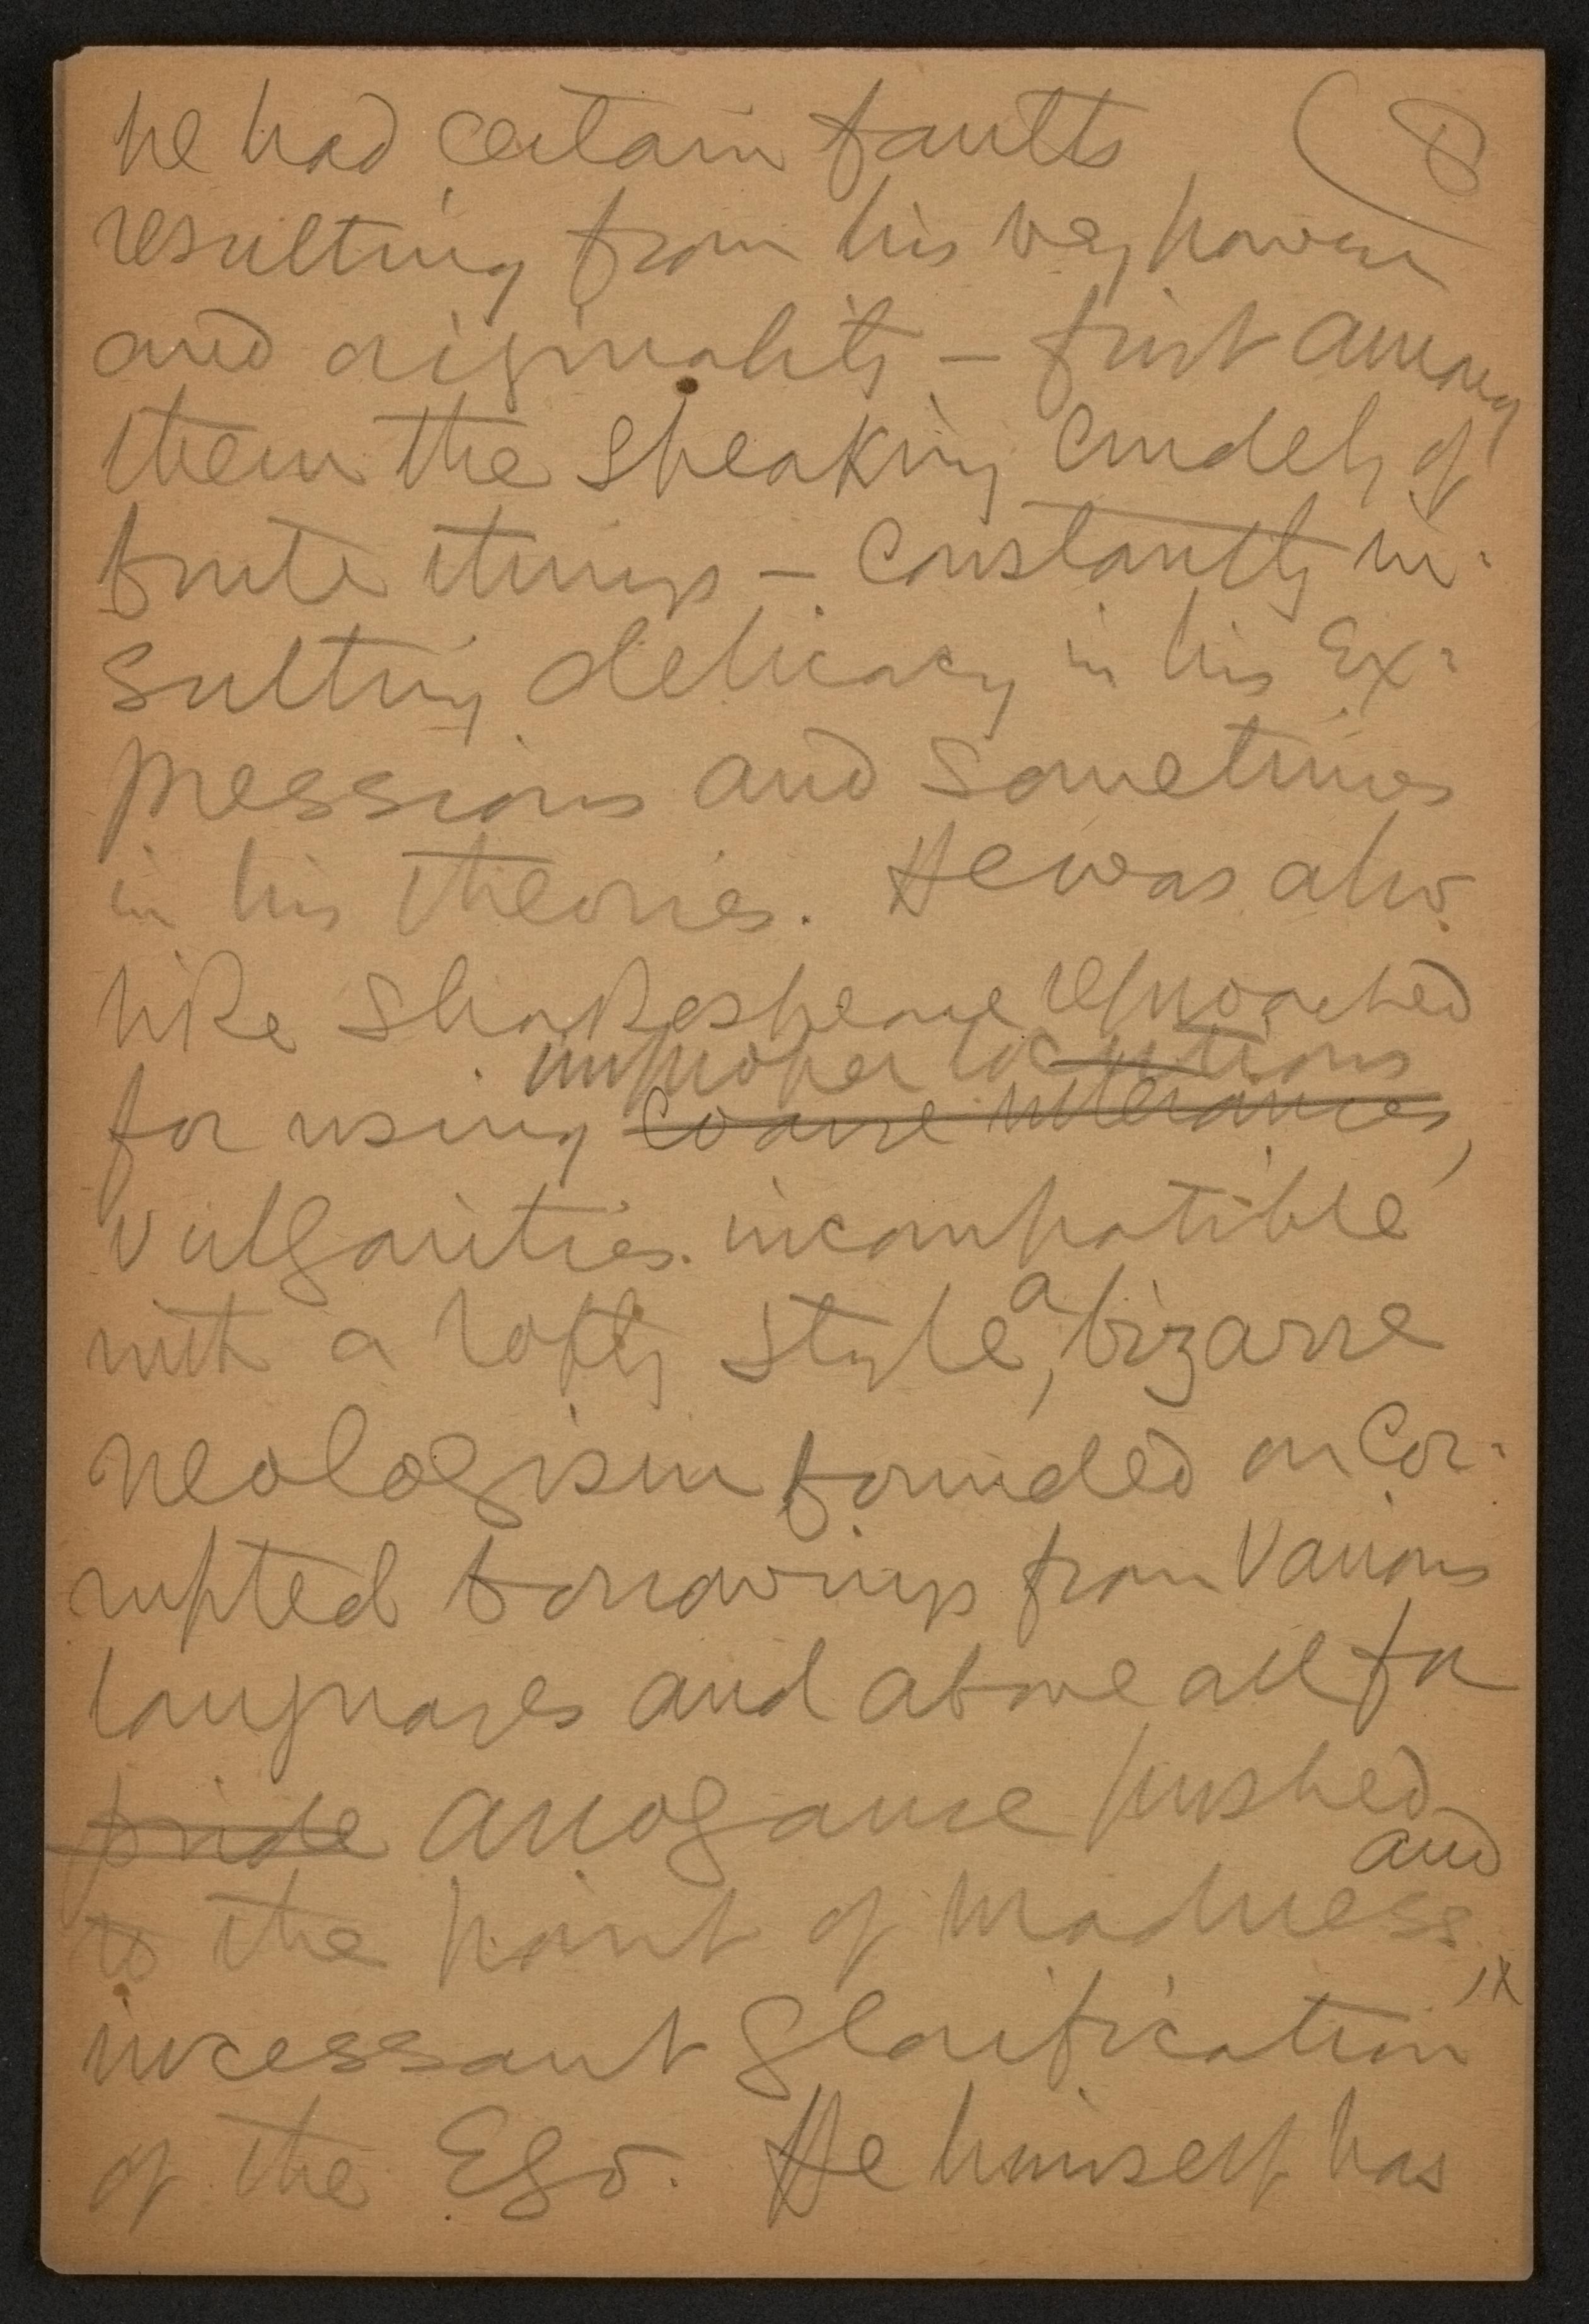 he had certain faults (8
resulting from his very power
and originality — first among
them the speaking crudely of
brute things — constantly in-
sulting delicacy in his ex-
pressions and sometimes
in his theories. He was also
like Shakespeare reproached
improper locutions
for using coarse utterances,
vulgarities. incompatible
with a lofty style, a bizarre
neologism founded on cor-
rupted borrowings from various
languages and above all for
pride arrogance pushed
and
to the point of madness
incessant glorification
of the Ego. He himself has